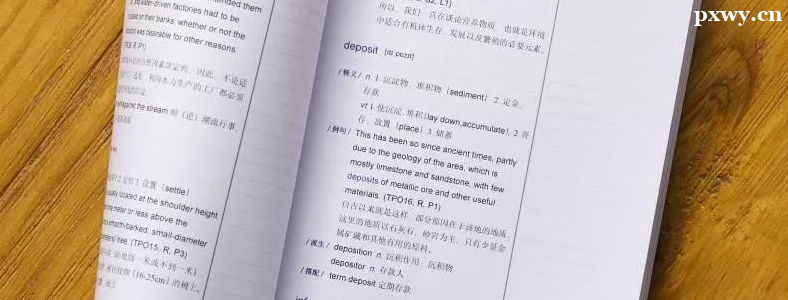 pxwy.cn
ended them
water-driven factories had to be
on their banks, whether or not the
was desirable for other reasons.
R, P1)
against the stream 顺（逆）潮流行事
设置（settle）
located at the shoulder height
meter or less above the
smooth-barked, small-diameter
tree. (TPO15, R, P3)
一米或不到一米）
(16-25cm) 的树上。
L1)
所以，我们一直在谈论营养物质，也就是环境
中适合有机体生存、发展以及繁殖的必要元素。
deposit [dɪˈpɑzɪt]
/释义/ n. 1. 沉淀物，堆积物（sediment） 2. 定金，
存款
vt. 1. 使沉淀，堆积(lay down,accumulate) 2. 寄
存，放置（place）3. 储蓄
/例句/ This has been so since ancient times, partly
due to the geology of the area, which is
mostly limestone and sandstone, with few
deposits of metallic ore and other useful
materials. (TPO16, R, P1)
自古以来就是这样，部分原因在于该地的地质，
这里的地质以石灰石、砂岩为主，只有少量金
属矿藏和其他有用的原料。
/派生/ deposition n. 沉积作用，沉积物
depositor n. 存款人
/搭配/ term deposit 定期存款